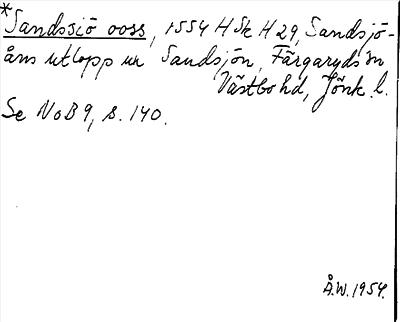 *Sandssiö ooss, 1554 HSk H 29, Sandsjö-
åns utlopp ur Sandsjön, Färgaryds sn
Västbo hd, Jönk. l.
Se NoB 9, s. 140.
Å.W. 1954.